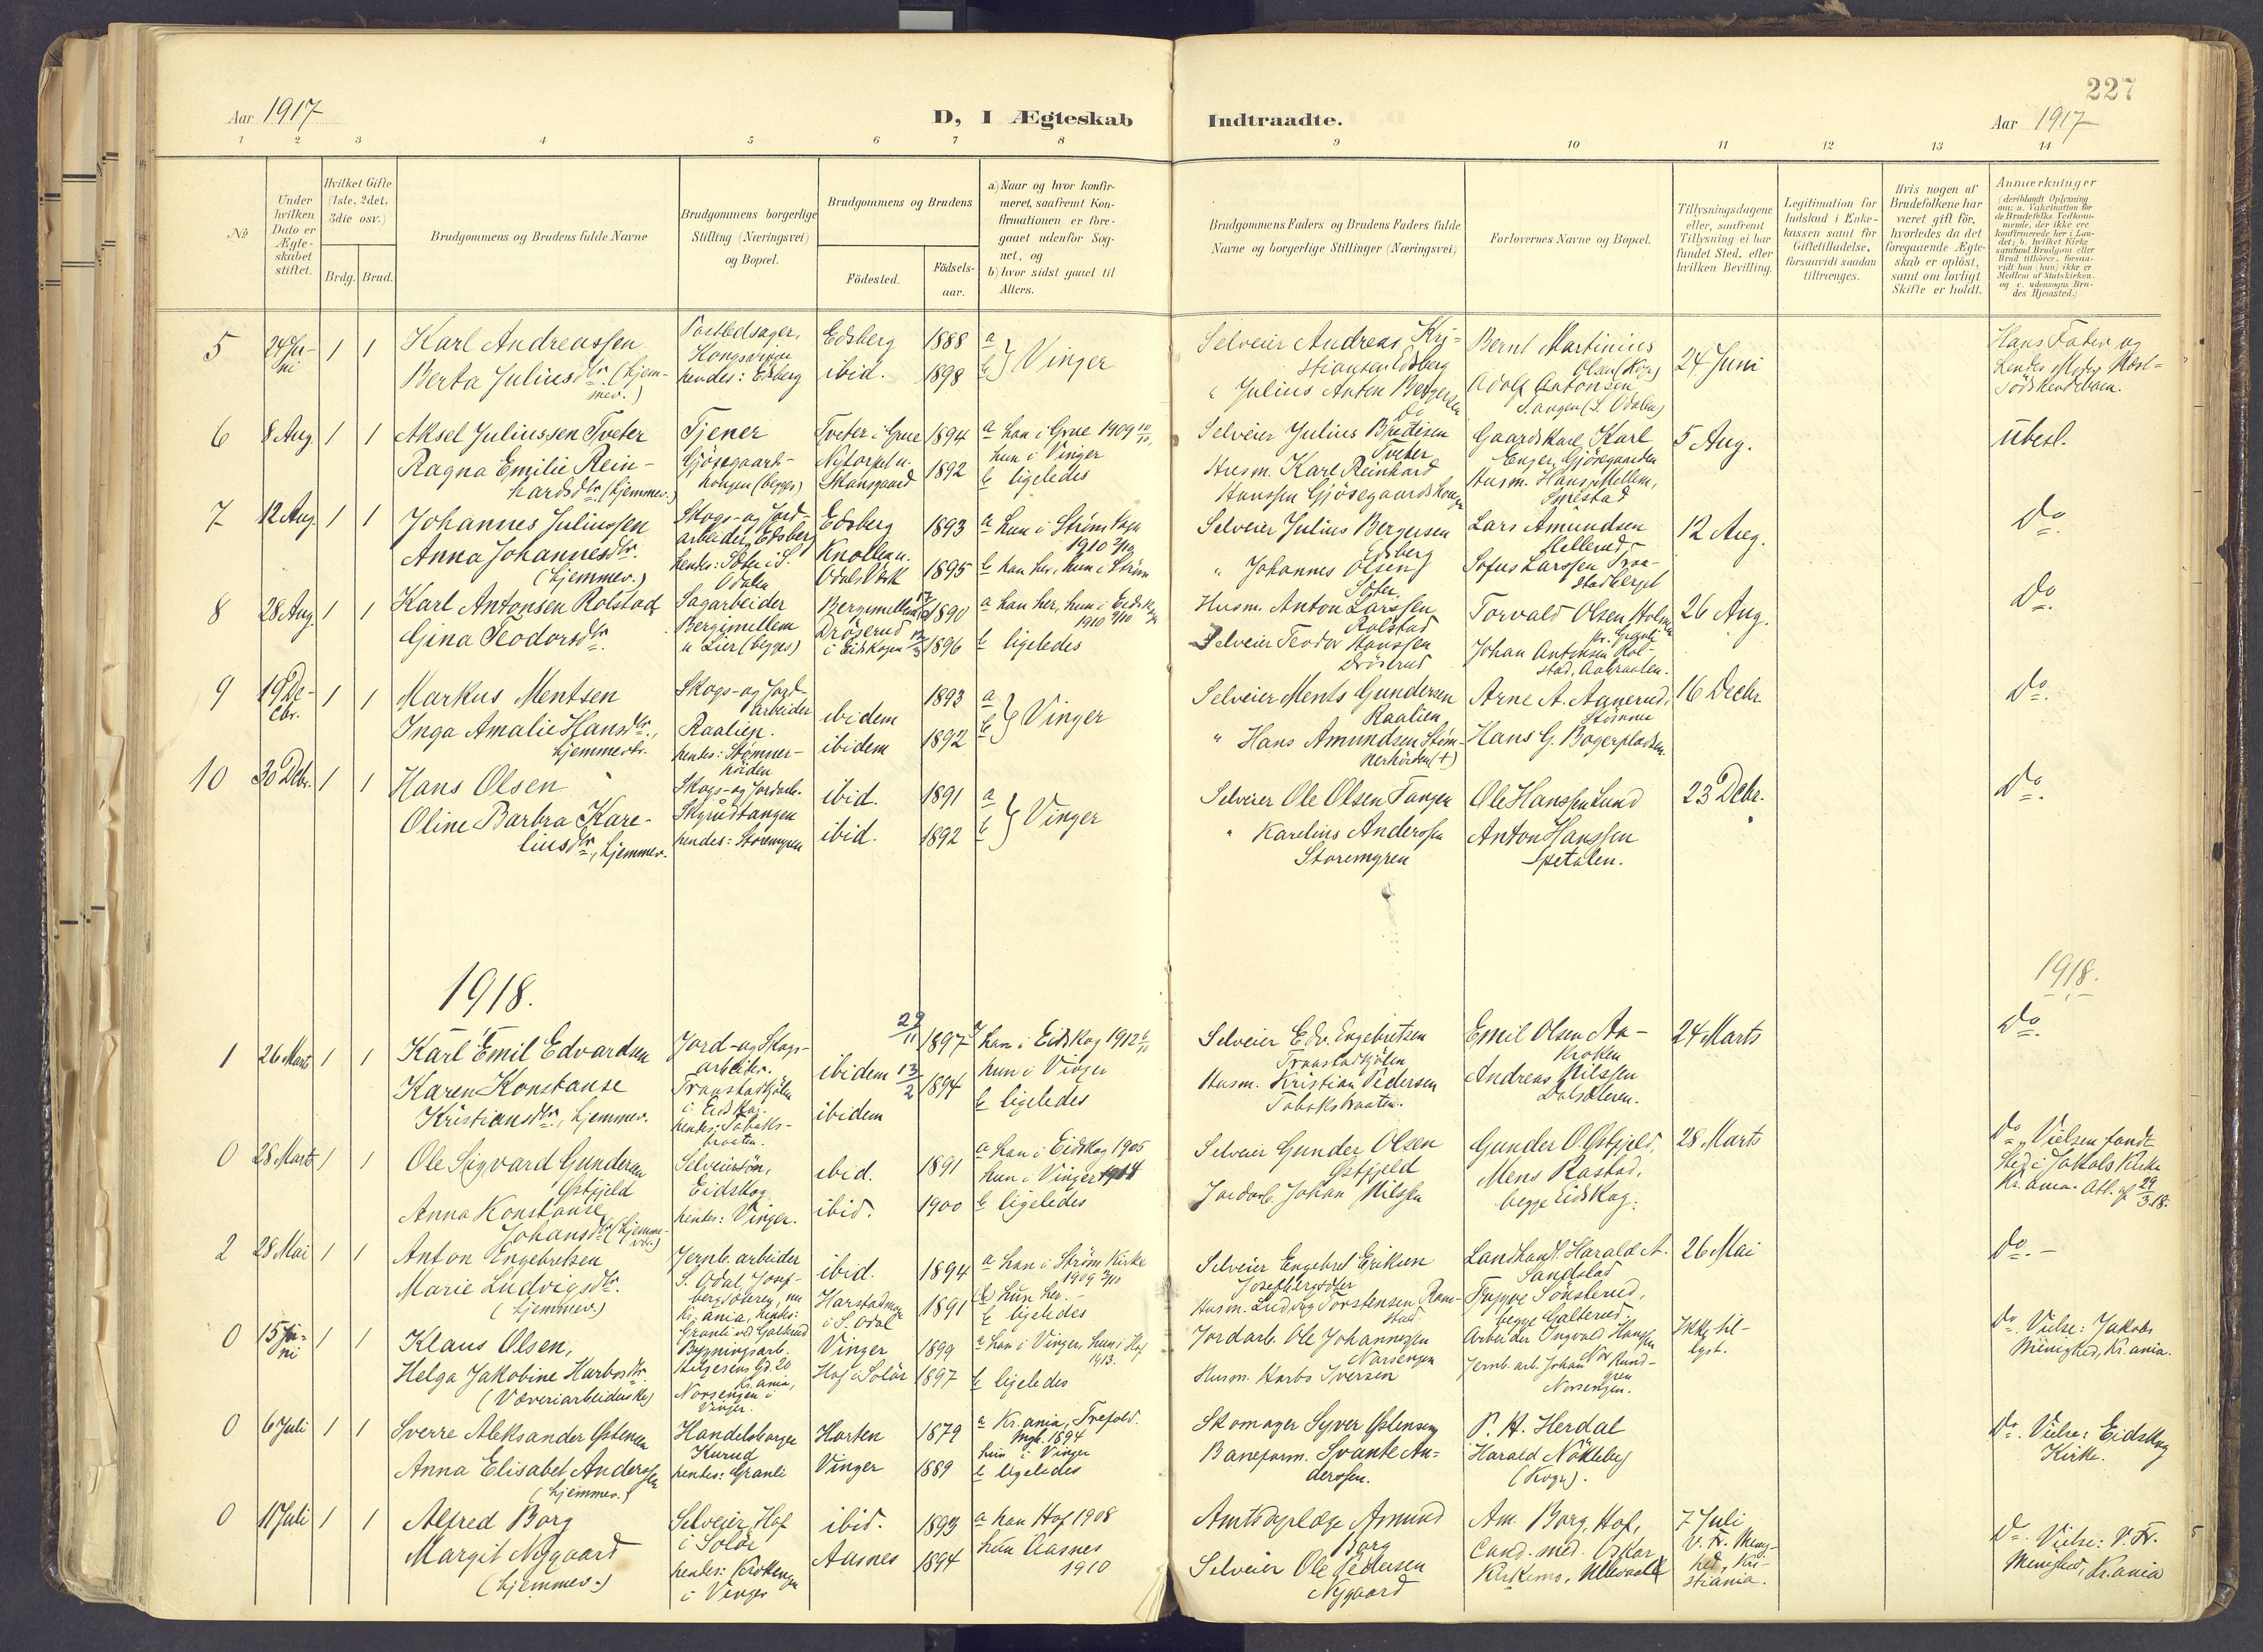 227
Aar 1917
D, I Ægteskab
Indtraadte.
Aar 1917
1 2 3 4 5 6 7 8 9 10 11 12 13 14
No
Under hvilken Dato er Ægteskabet stiftet.
Hvilket Gifte (1ste, 2det, 3die osv.)
Brdg. Brud.
Brudgommens og Brudens fulde Navne
Brudgommens borgerlige Stilling (Næringsvei) og Bopæl.
Brudgommens og Brudens
Födested.
Födsels-aar.
a) Naar og hvor konfir-
meret, saafremt Kon-
firmationen er fore-
gaaet udenfor Sog-
net, og
b) hvor sidst gaaet til
Alters.
Brudgommens Faders og Brudens Faders fulde
Navne og borgerlige Stillinger (Næringsvei)
Forlovernes Navne og Bopæl.
Tillysningsdagene
eller, saafremt
Tillysning ei har
fundet Sted, efter
hvilken Bevilling.
Legitimation for
Indskud i Enke-
kassen samt for
Giftetilladelse,
forsaavidt saadan
tiltrænges.
Hvis nogen af
Brudefolkene har
været gift för,
hvorledes da det
foregaaende Ægte-
skab er oplöst,
samt om lovligt
Skifte er holdt.
Anmærkninger
(deriblandt Oplysning
om: a. Vakcination for
de Brudefolks Vedkom-
mende, der ikke ere
konfirmerede her i Lan-
det; b. hvilket Kirke-
samfund Brudgom eller
Brud tilhörer, forsaa-
vidt han (hun) ikke er
Medlem af Statskirken.
og c. udensogns Bru-
des Hjemsted.)
5 24 Ju-
ni 1 1 Karl Andreassen
Berta Juliusdtr. (hjem-
mev.)
Kongsvinger
hendes: Edsberg
Edsberg 1888
ibid. 1898
a
b } Vinger
Selveier Andreas Kri-
stiansen Edsberg
" Julius Anton Bergersen
Do
Bernt Martinius
Olsen (Kgv.)
Adolf Antonsen
Tangen (S. Odalen)
24 Juni
Hans Fader og
hendes Moder
Södskendebarn.
6 8 Aug. 1 1 Aksel Juliussen Tveter
Ragna Emilie Rein-
hardsdtr. (hjemmev.)
Tjener
Gjösegaards-
haugen (begges)
Tveter i Grue 1894
Skansgaard 1892
a han i Grue 1909 10/10,
hun i Vinger
b ligeledes
Selveier Julius Bredesen
Tveter
Husm. Karl Reinhard
Hanssen Gjösegaardshaugen
Gaardskarl Karl
Enger, Gjösegaarden
Husm. Hans Mellem,
5 Aug.
ubesl.
7 12 Aug. 1 1 Johannes Juliussen
Anna Johannesdtr.
(hjemmev.)
Skogs- og Jord-
arbeider, Edsberg
hendes: Sæter i S.
Odalen
Edsberg 1893
Knollen u.
Odals Værk 1895
a hun i Ström Sogn
1910 2/10
b han her, hun i Ström
Selveier Julius Bergersen
Edsberg
" Johannes Olsen
Sæter,
Lars Amundsen
Mellerud
Sofus Larssen Traa-
stadberget
12 Aug.
Do.
8 28 Aug. 1 1 Karl Antonsen Rolstad
Gina Teodorsdtr.
Sagarbeider
Bergimellem
u Lier (begges)
Bergimellem 1890
Dröserud
i Eidskogen 1896
a han her, hun i Eidskog
1910 2/10
b ligeledes
Husm. Anton Larssen
Rolstad
Selveier Teodor Hanssen
Dröserud
Torvald Olsen Holmen
Johan Antonsen Rol-
stad, Aabraaten.
26 Aug.
Do.
9 19 De-
cbr. 1 1 Markus Mentsen
Inga Amalie Hansdtr.,
hjemmev.
Skogs- og Jord-
arbeider
Raalien.
hendes: Stömner-
höiden
ibidem 1893
ibidem 1892
a
b } Vinger
Selveier Ments Gundersen
Raalien
" Hans Amundsen Stöm-
nerhöiden (†)
Arne A. Aanerud,
Stömner
Hans G. Bogerpladsen
16 Decbr.
Do.
10 30 Dcbr. 1 1 Hans Olsen
Oline Barbra Kare-
liusdtr., hjemmev.
Skogs- og Jordarb.
Skyrudtangen
hendes: Storemyren
ibid. 1891
ibid. 1892
a
b } Vinger
Selveier Ole Olsen Tangen
" Karelius Anderssen
Storemyren
Ole Hanssen Lund
Anton Hanssen
Spetalen.
23 Dcbr.
Do.
1918.
1918.
1 26 Marts 1 1 Karl Emil Edvardsen
Karen Konstanse
Kristiansdtr., hjemmev.
Jord- og Skogs-
arbeider.
Traastadkjölen
i Eidskog.
hendes: Tobaks-
braaten.
ibidem 29/11 1897
ibidem 13/2 1894
a han i Eidskog 1912 6/10
hun i Vinger
b ligeledes
Selveier Edv. Engebretsen
Traastadkjölen
Husm. Kristian Pedersen
Tobaksbraaten.
Emil Olsen Aa-
kroken
Andreas Nilssen
Dalsæteren.
24 Marts
Do.
0 28 Marts 1 1 Ole Sigvard Gundersen
Östfjeld
Anna Konstanse
Johansdtr. (hjemme-
vær.)
Selveiersön,
Eidskog
hendes: Vinger.
ibid. 1891
ibid. 1900
a han i Eidskog 1905
hun i Vinger 1914
b ligeledes
Selveier Gunder Olsen
Östfjeld
Jordarb. Johan Nilssen
Gunder O. Östfjeld,
Mens Rastad,
begge Eidskog.
28 Marts
Do. Vielsen fandt
Sted i Jakobs Kirke
Kr.ania. Att. af 29/3 18.
2 28 Mai 1 1 Anton Engebretsen
Marie Ludvigsdtr.
(hjemmev.)
Jernb.arbeider
S. Odal, Josef-
bergsæteren, nu
Kr.ania, hendes:
Granli ved Galterud
ibid. 1894
i S. Odal 1891
a han i Ström Kirke
1909 3/10
(b) hun her.
b ligeledes
Selveier Engebret Eriksen
Josefbergsæter
Husm. Ludvig Torstensen
Landhandl. Harald A.
Sandstad
Trygve Sönsterud,
begge Galterud.
26 Mai
Do. -
0 15 Ju-
ni 1 1 Klaus Olsen,
Helga Jakobine Karbosdtr.
(Væveriarbeiderske)
Bygningsarb.
Kr.ania,
Norsengen i
Vinger.
Vinger 1899
Hof i Solör 1897
a han i Vinger, hun i Hof
1913.
b ligeledes
Jordarb. Ole Johannessen
Norsengen
Husm. Karbo Iversen
Arbeider Ingvald Hanssen
Nor
Jernb.arb. Johan Rund-
gren
Norsengen.
Ikke til-
lyst.
Do. Vielse: Jakobs
Menighed, Kr.ania.
0 6 Juli 1 1 Sverre Aleksander Östensen
Anna Elisabet Anderssen
(hjemmev.)
Handelsborger
Kurud
hendes: Granli
Horten 1879
Vinger 1889
a Kr.ania, Trefold.
Mgh. 1894
hun i Vinger
b ligeledes
Skomager Syver Östensen
Baneform. Svante An-
derssen.
P. H. Herdal
Harald Nökleby
(Kvgr.).
Do. Vielse: Eidskog
Kirke.
0 11 Juli 1 1 Alfred Borg
Margit Nygaard
(hjemmev.)
Selveier, Hof
i Solör
hendes:
i Vinger
ibid. 1893
Aasnes 1894
a han Hof 1908
hun Aasnes
1910
Amund
Borg
Selveier Ole Pedersen
Nygaard
Am. Borg, Hof,
Cand. med. Oskar
Kirkemo, Ullevaal
7 Juli
V. Fr. Menig-
hed, Kri-
stiania.
Do. Vielse: V. Fr.
Menighed, Kr.ania